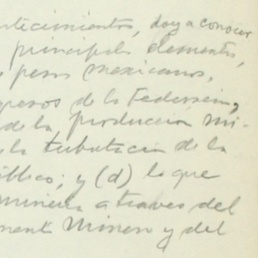 nticimientos, doy a conocer
principales elementos,
pesos mexicanos,
gresos de la Federación,
de la producción mi-
la tributación de la
blico; y (d) lo que
minería a través del
Minero y del